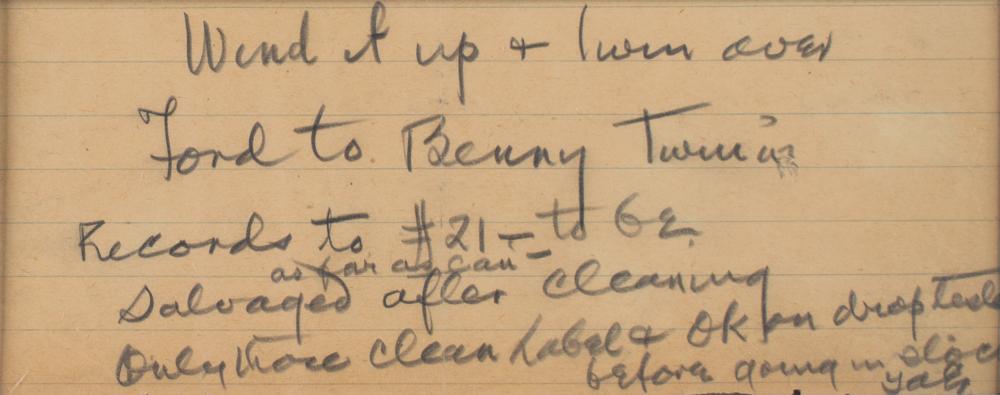 Wind it up & turn over
Ford to Benny
Records to #21 — to be
as far as can
Salvaged after cleaning
Only those clean label & OK on drop test
before going in